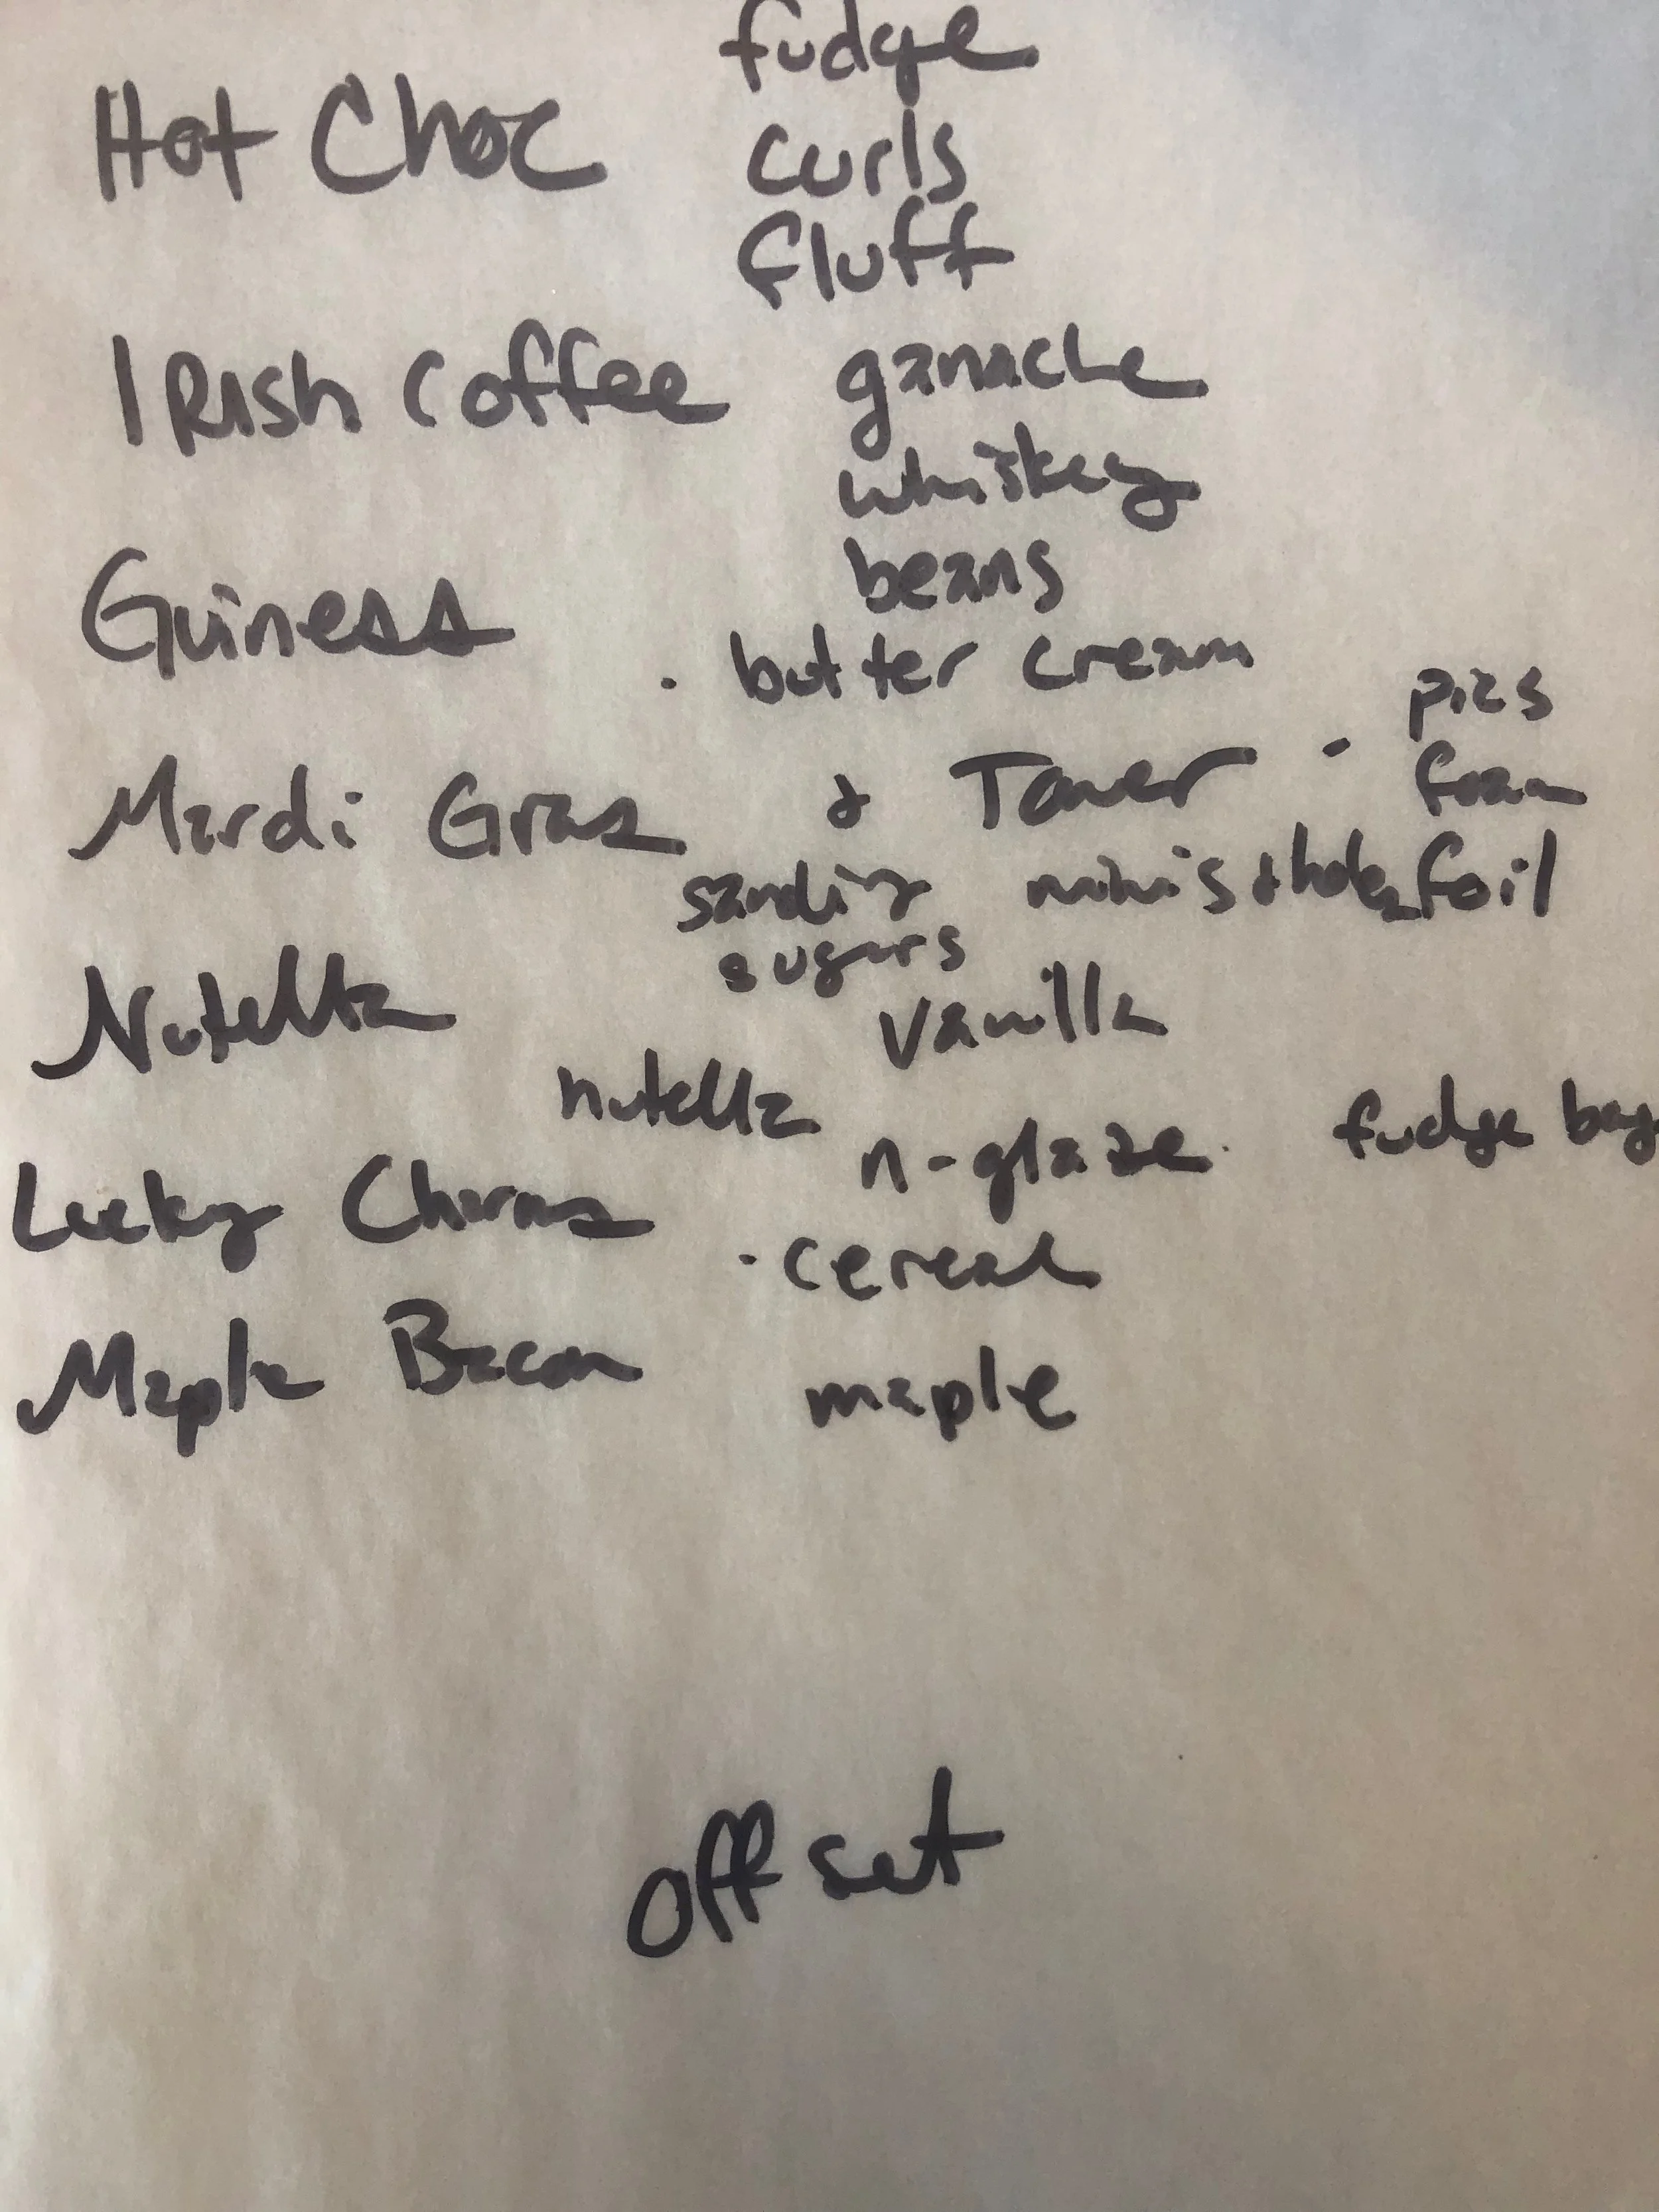 fudge
Hot Choc
curls
fluff
Irish Coffee
ganache
whiskey
beans
Guiness
. butter cream
Mardi Gras & Tower - pics
foam
sanding minis & holes foil
sugars
Nutella
vanilla
nutella
n-glaze. fudge bag
Lucky Charms
. cereal
Maple Bacon
maple
off set